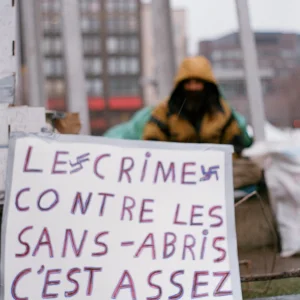 LES CRIMES
CONTRE LES
SANS-ABRIS
C'EST ASSEZ